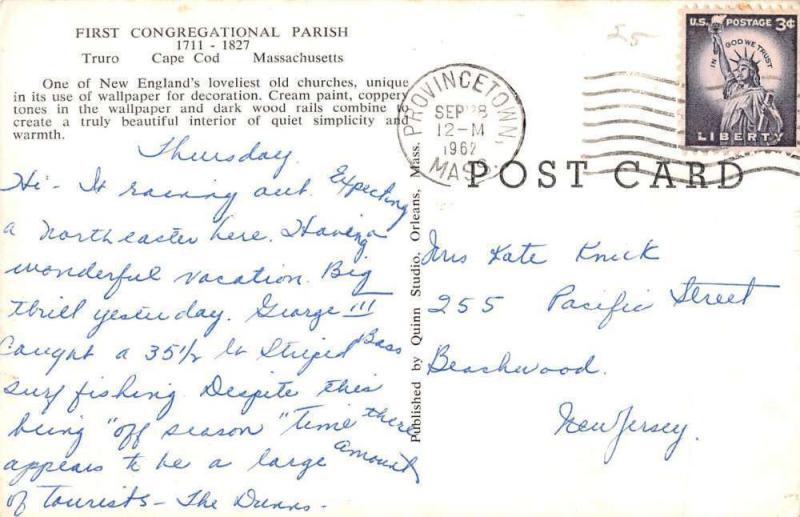 FIRST CONGREGATIONAL PARISH
1711 - 1827
Truro Cape Cod Massachusetts
One of New England's loveliest old churches, unique
in its use of wallpaper for decoration. Cream paint, coppery
tones in the wallpaper and dark wood rails combine to
create a truly beautiful interior of quiet simplicity and
warmth.
Thursday.
Hi - It raining out. Expecting
a northeaster here. Having
wonderful vacation. Big
thrill yesterday. George III
caught a 35 1/2 lb Striped Bass
surf fishing. Despite this
being "off season" time there
appears to be a large amount
of tourists - The Dunns.
Published by Quinn Studio, Orleans, Mass.
25
PROVINCETOWN,
SEP 28
12-M
1962
MASS.
U.S. POSTAGE 3¢
IN GOD WE TRUST
LIBERTY
POST CARD
Mrs Kate Knick
255 Pacific Street
Beachwood.
New Jersey.